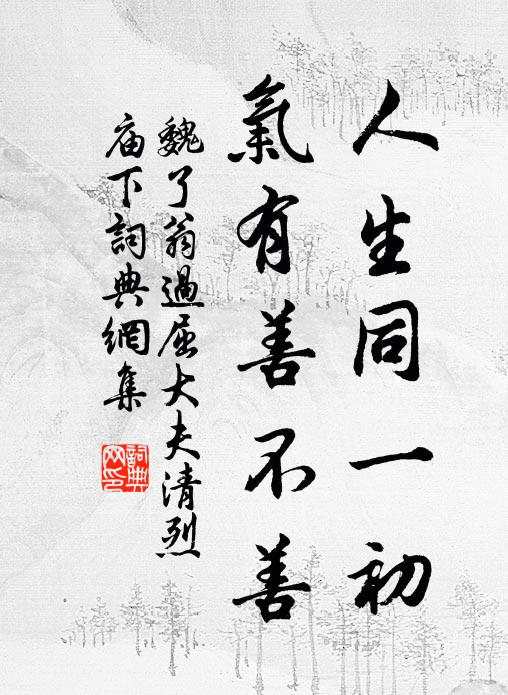 人生同一初
氣有善不善
魏了翁過屈大夫清烈
庙下詞典網集
詞典网印